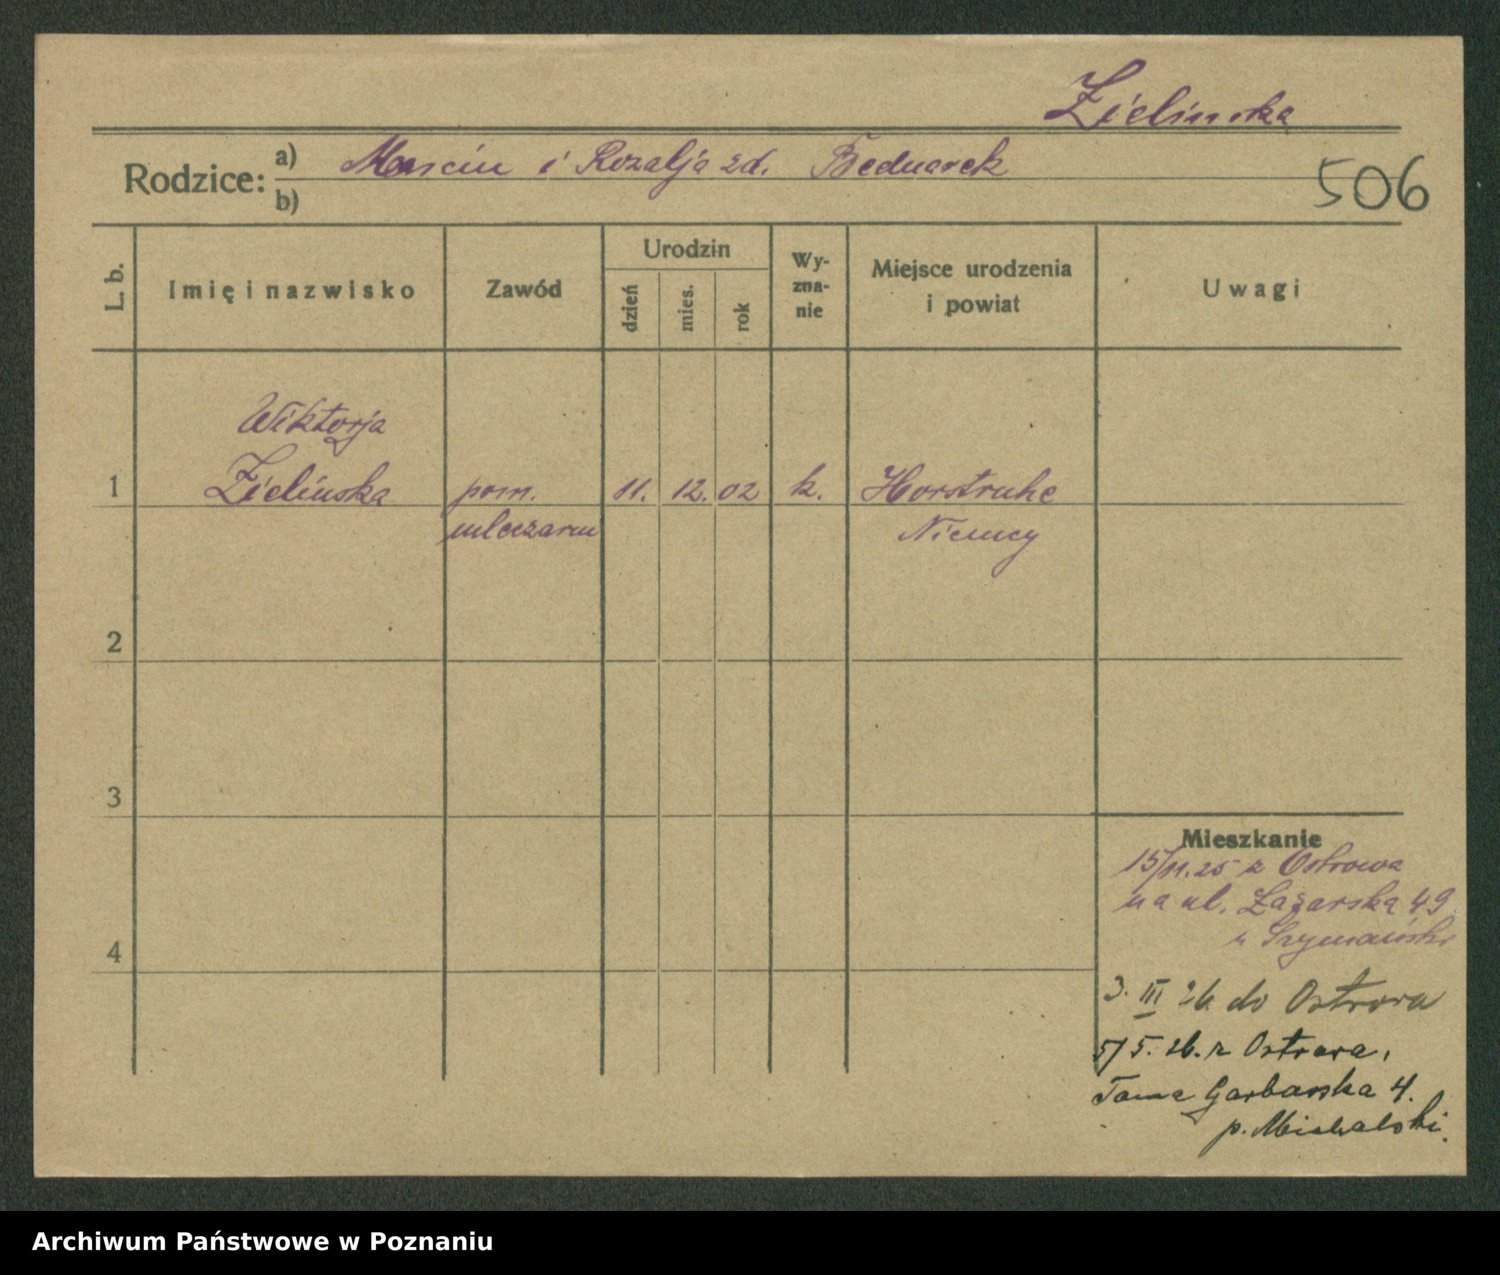 Zielinska
Rodzice: a) Marcin i Rozalja zd. Bednarek
b)
506
L. b.
Imię i nazwisko
Zawód
Urodzin
dzień
mies.
rok
Wy-
zna-
nie
Miejsce urodzenia
i powiat
Uwagi
Wiktorja
1 Zielińska pom. 11. 12. 02 k. Horstruhe
mleczarni Niemcy
2
3
4
Mieszkanie
15/11.25 z Ostrowa
na ul. Łazarska 49
u Szymański
3. III 26 do Ostrowa
5/5. 26. z Ostrowa,
Tama Garbarska 4.
p. Michalski.
Archiwum Państwowe w Poznaniu